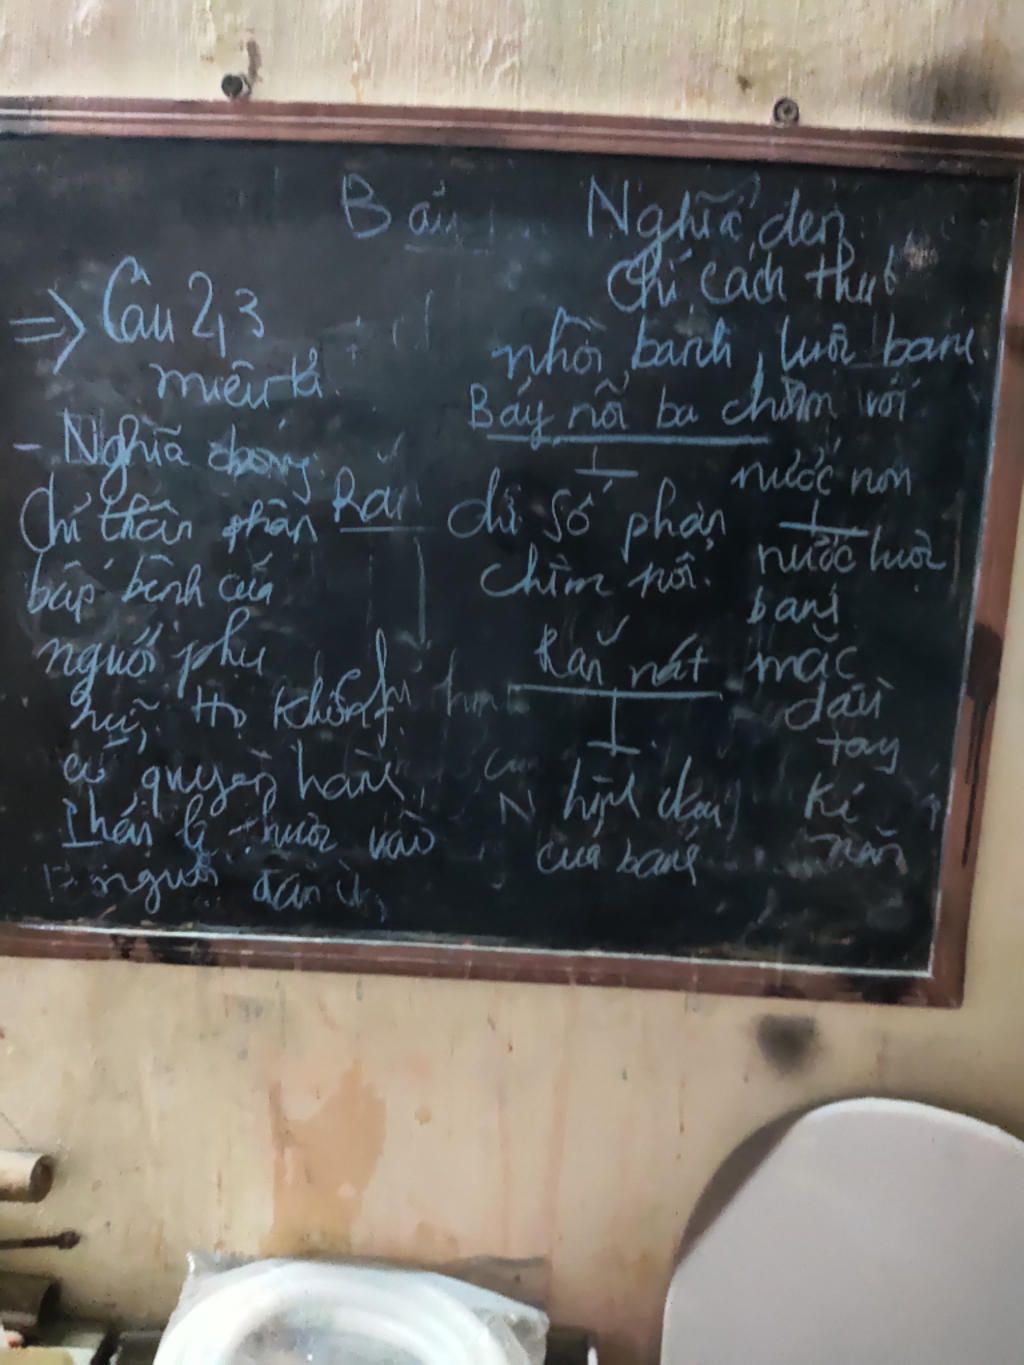 Nghĩa đen
Chỉ cách thức
nhồi bánh, luộc bánh
Bảy nổi ba chìm với
nước non
chỉ số phận
chìm nổi.
nước luộc
bánh
Rắn nát
mặc
dầu
tay
kẻ
nặn
hình dạng
của bánh
=> Câu 2,3
miêu tả
- Nghĩa
Chỉ thân phận
bấp bênh của
người phụ
nữ, Họ không
có quyền hành,
thuộc vào
người đàn
Rắn